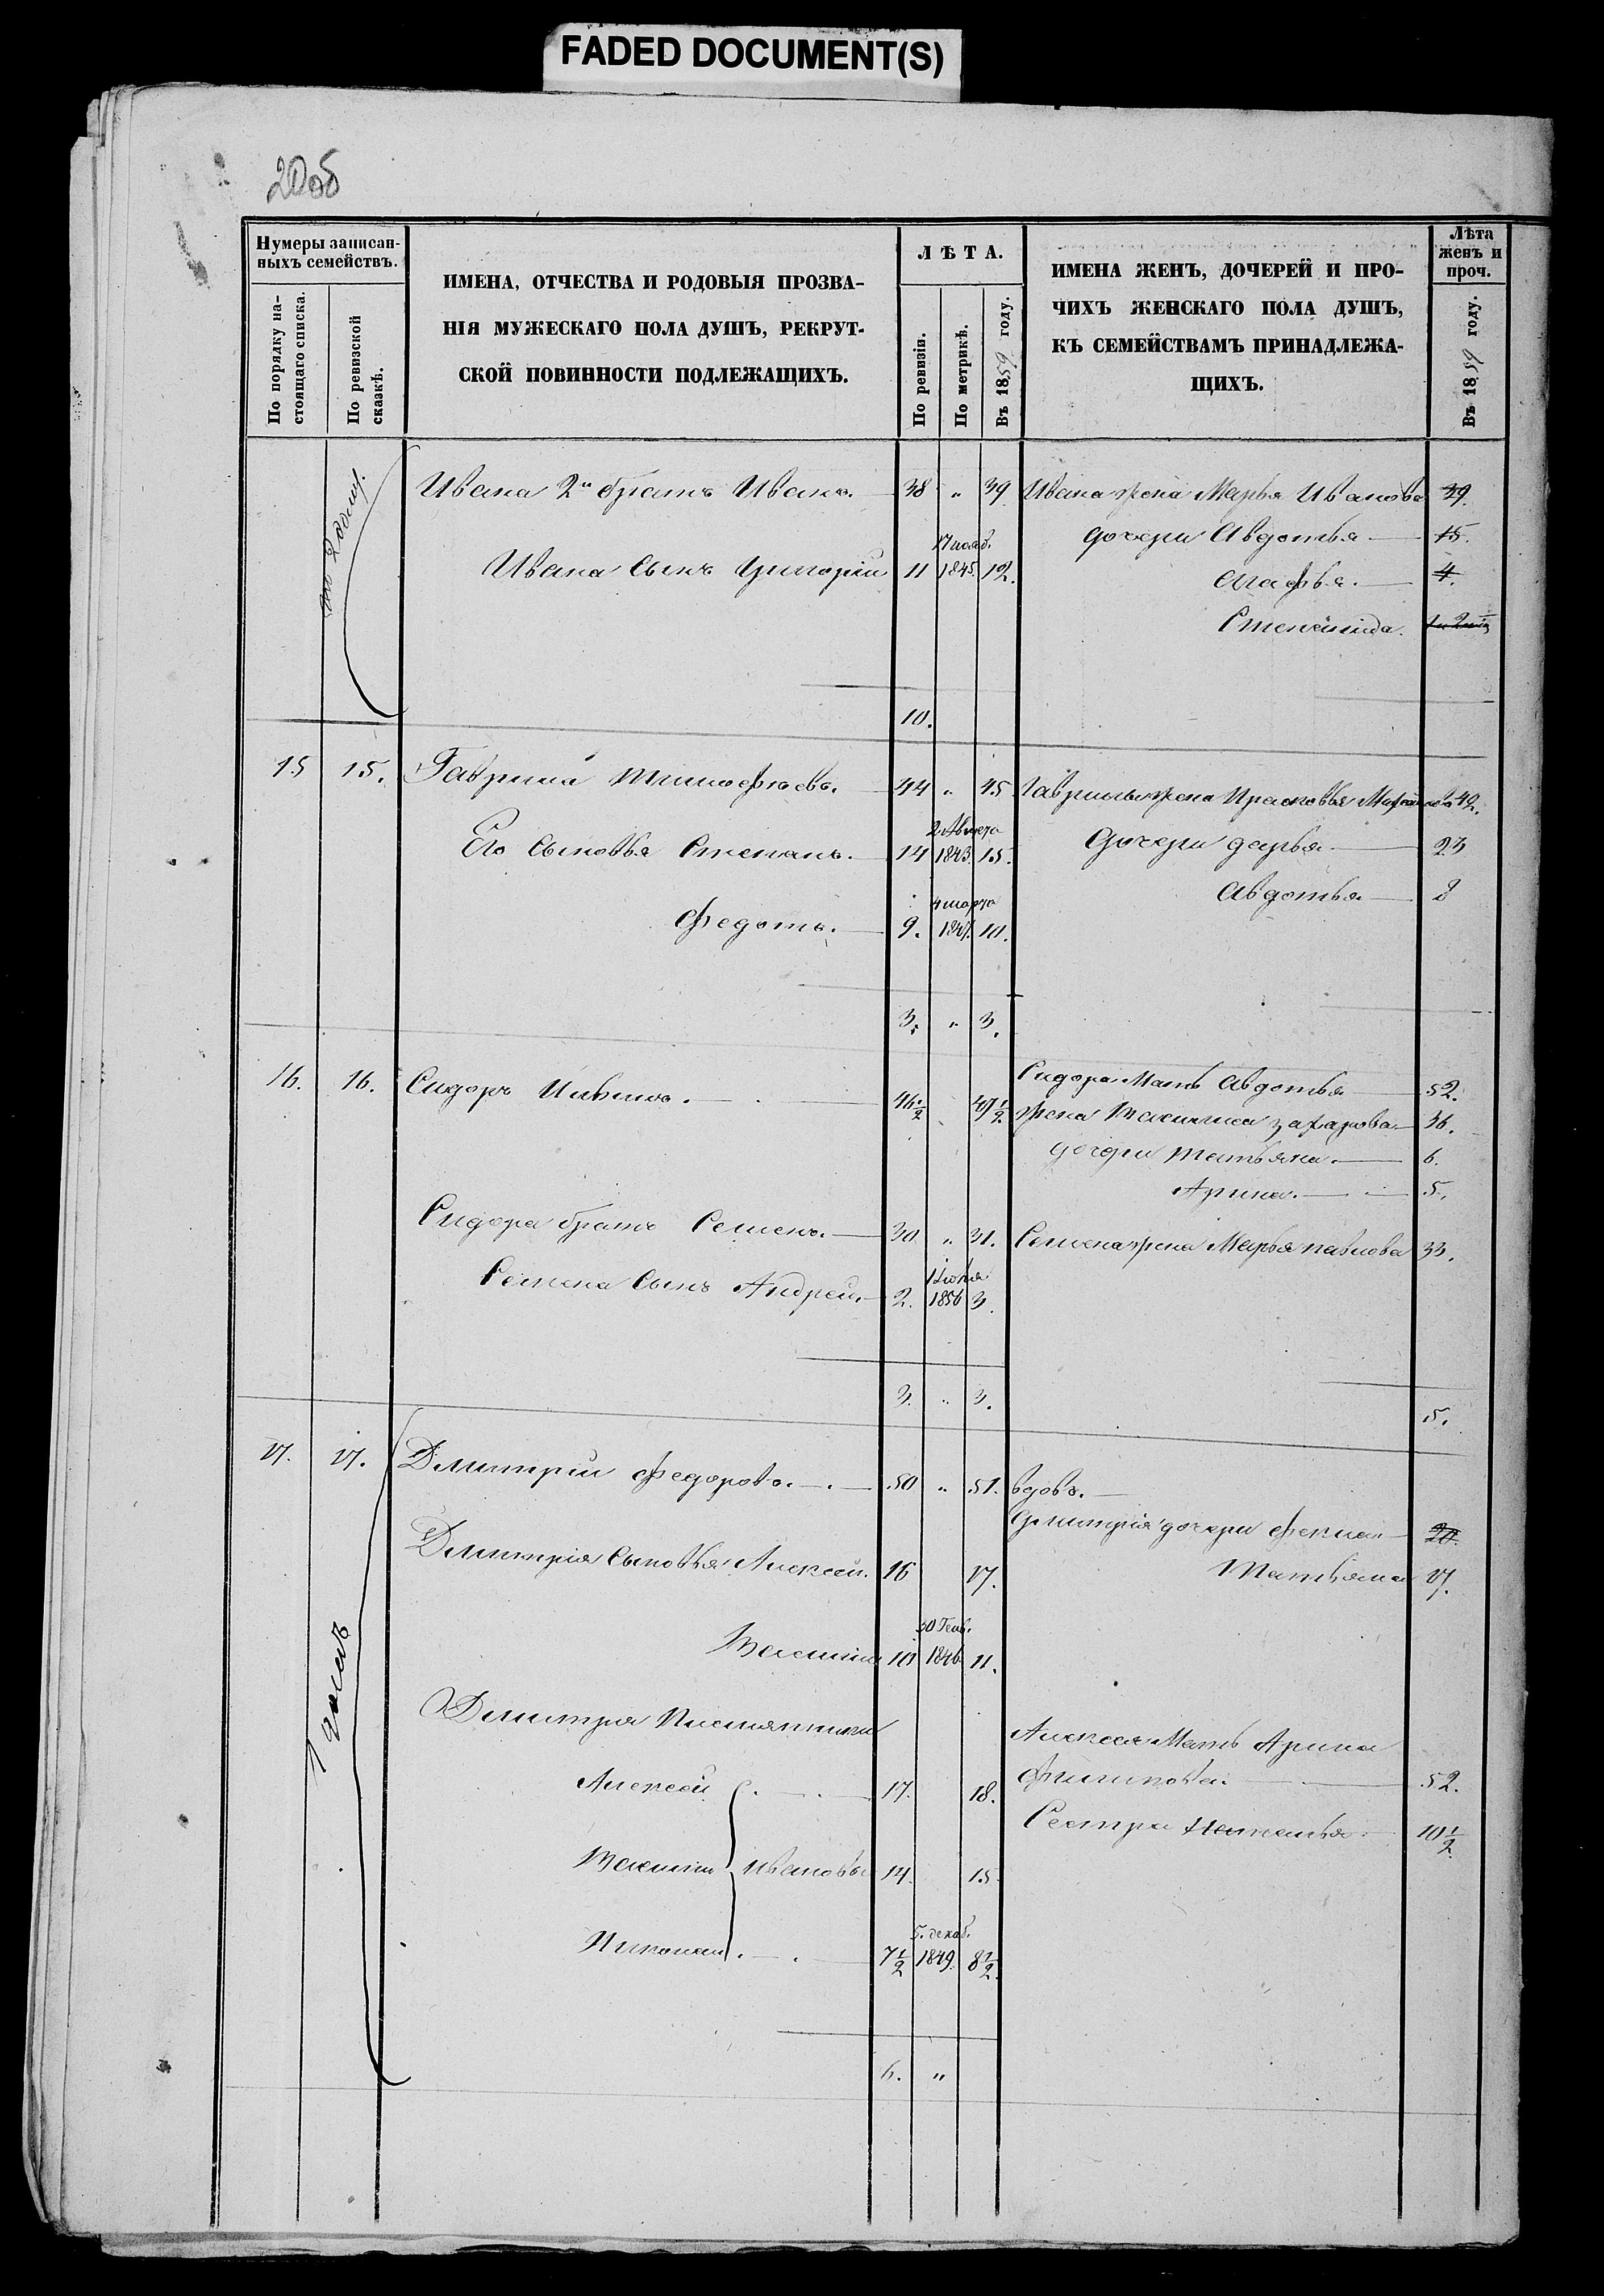 FADED DOCUMENT(S)
20об
Нумеры записан-
ныхъ семействъ.
По порядку на-
стоящаго списка.
По ревизской
сказкѣ.
ИМЕНА, ОТЧЕСТВА И РОДОВЫЯ ПРОЗВА-
НІЯ МУЖЕСКАГО ПОЛА ДУШЪ, РЕКРУТ-
СКОЙ ПОВИННОСТИ ПОДЛЕЖАЩИХЪ.
ЛѢТА.
По ревизіи.
По метрикѣ.
Въ 1859 году.
ИМЕНА ЖЕНЪ, ДОЧЕРЕЙ И ПРО-
ЧИХЪ ЖЕНСКАГО ПОЛА ДУШЪ,
КЪ СЕМЕЙСТВАМЪ ПРИНАДЛЕЖА-
ЩИХЪ.
Лѣта
женъ и
проч.
Въ 1859 году.
Ивана 2й братъ Иванъ. 38 „ 39 Ивана жена Марья Иванова 39.
дочери Авдотья 15.
17 нояб.
Ивана сынъ Григорій 11 1845 12.
4.
Степанида.
10.
15 15. Гаврила Тимофѣевъ. 44 „ 45 Гаврилы жена Прасковья 42.
2 Августа
Его сыновья Степанъ. 14 1843 15. Дочери дарья 23
Авдотья 8
4 марта
Федотъ. 9. 1847 10.
3. „ 3.
16. 16. Сидоръ 46 1/2 47 1/2
Сидора Мать Авдотья 52.
жена захарова 36.
дочери татьяна. 6.
Арина. 5.
Сидора братъ Семенъ. 30 „ 31. Семена жена Марья павлова 33.
1 Июня
Семена сынъ Андрей. 2. 1856 3.
3. „ 3.
5.
17. 17. Дмитрій федоровъ. 50 „ 51. вдовъ.
Дмитрія дочери фекла 20.
Дмитрія сыновья Алексѣй. 16 17. Татьяна 17.
30 Генв.
Василій 10 1846 11.
1 домъ
Дмитрія Племянники
Алексѣя Мать Арина
Алексѣй 17. 18. Филипова. 52.
Сестра Наталья 10 1/2
Василій Ивановы 14. 15.
5. декаб.
Николай 7 1/2 1849. 8 1/2
6. „